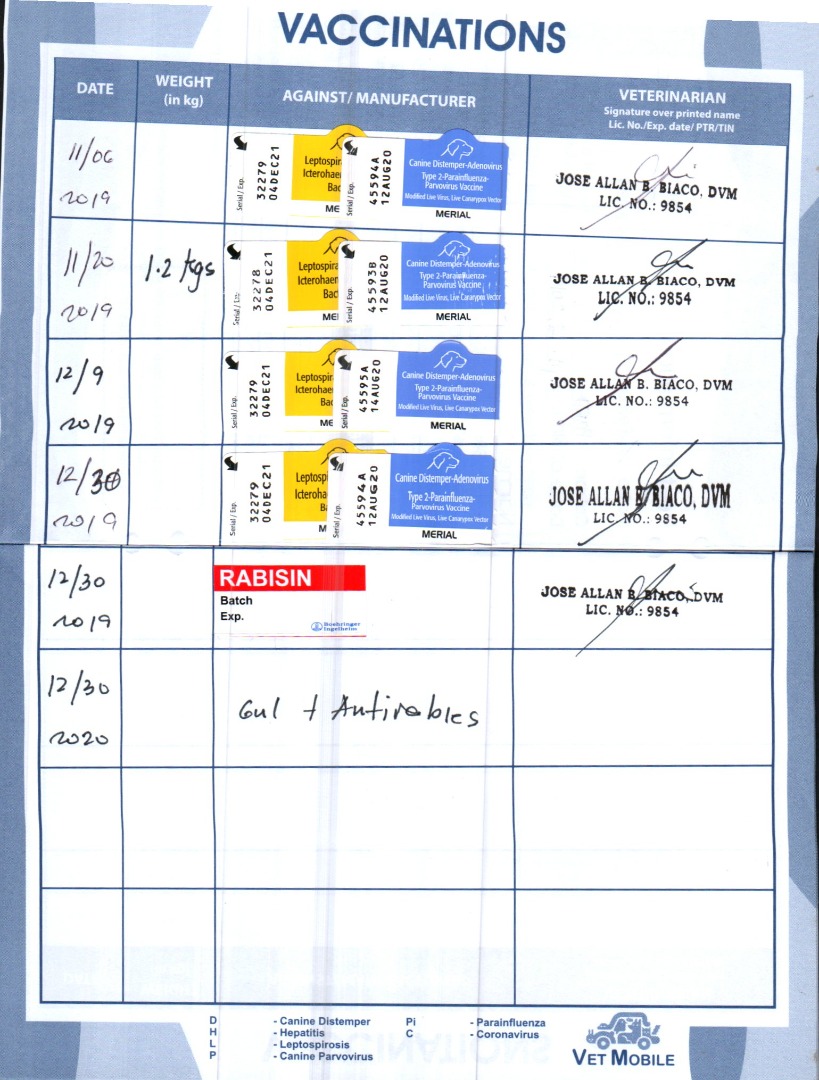 VACCINATIONS
DATE
WEIGHT
(in kg)
AGAINST/ MANUFACTURER
VETERINARIAN
Signature over printed name
Lic. No./Exp. date/ PTR/TIN
11/06
2019
Serial / Exp.
32279
04DEC21
Leptospir
Icterohae
Bac
ME
Serial / Exp.
45594A
12AUG20
Canine Distemper-Adenovirus
Type 2-Parainfluenza-
Parvovirus Vaccine
Modified Live Virus, Live Canarypox Vector
MERIAL
JOSE ALLAN B. BIACO, DVM
LIC. NO.: 9854
11/20
2019
1.2 kgs
32278
04DEC21
Leptospira
Icterohaen
Bac
ME
Serial / Exp.
45593B
12AUG20
Canine Distemper-Adenovirus
Type 2-Parainfluenza-
Parvovirus Vaccine
Modified Live Virus, Live Canarypox Vector
MERIAL
JOSE ALLAN B. BIACO, DVM
LIC. NO.: 9854
12/9
2019
Serial / Exp.
32279
04DEC21
Leptospir
Icterohae
Bac
ME
Serial / Exp.
45595A
14AUG20
Canine Distemper-Adenovirus
Type 2-Parainfluenza-
Parvovirus Vaccine
Modified Live Virus, Live Canarypox Vector
MERIAL
JOSE ALLAN B. BIACO, DVM
LIC. NO.: 9854
12/30
2019
Serial / Exp.
32279
04DEC21
Leptospi
Icteroha
Ba
M
Serial / Exp.
45594A
12AUG20
Canine Distemper-Adenovirus
Type 2-Parainfluenza-
Parvovirus Vaccine
Modified Live Virus, Live Canarypox Vector
MERIAL
JOSE ALLAN B. BIACO, DVM
LIC. NO.: 9854
12/30
2019
RABISIN
Batch
Exp.
Boehringer
Ingelheim
JOSE ALLAN B. BIACO, DVM
LIC. NO.: 9854
12/30
2020
+ Antirabies
D - Canine Distemper
H - Hepatitis
L - Leptospirosis
P - Canine Parvovirus
Pi - Parainfluenza
C - Coronavirus
VET MOBILE